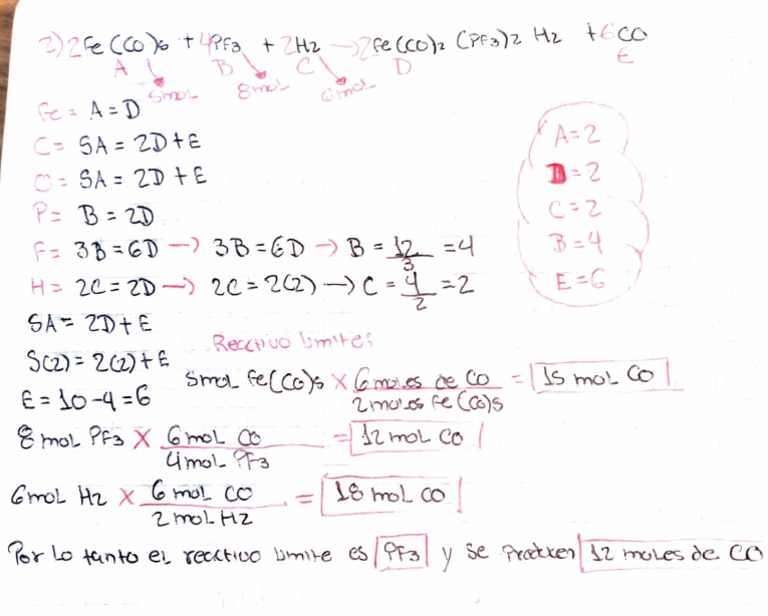 2) 2Fe(CO)5 + 4PF3 + 2H2 → 2Fe(CO)2 (PF3)2 H2 + 6CO
A B C D E
5mol 8mol 6mol
Fe = A = D
C = 5A = 2D + E
O = 5A = 2D + E
P = B = 2D
F = 3B = 6D → 3B = 6D → B = 12/3 = 4
H = 2C = 2D → 2C = 2(2) → C = 4/2 = 2
5A = 2D + E
5(2) = 2(2) + E
E = 10 - 4 = 6
A = 2
D = 2
C = 2
B = 4
E = 6
Reactivo limite:
5mol Fe(CO)5 x 6 moles de CO / 2 moles Fe(CO)5 = 15 mol CO
8 mol PF3 x 6 mol CO / 4 mol PF3 = 12 mol CO
6 mol H2 x 6 mol CO / 2 mol H2 = 18 mol CO
Por lo tanto el reactivo limite es PF3 y se producen 12 moles de CO